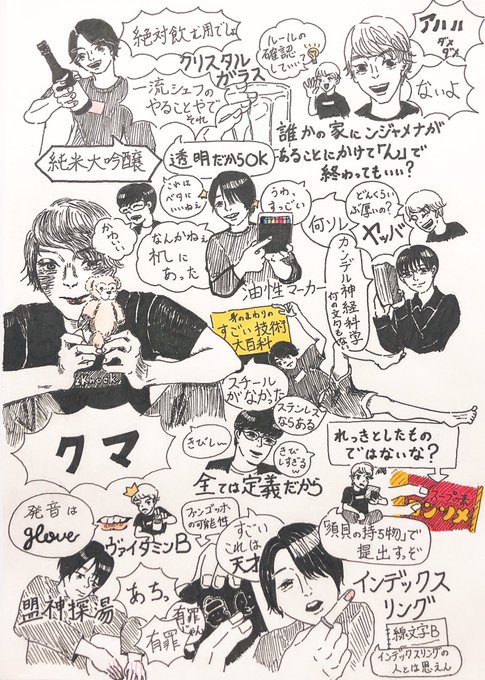 絶対飲む用でしょ
クリスタル
ガラス
ルールの
確認
していい?
アハハ
ダメ
ダメ
ないよ
一流シェフの
やることやで
それ
純米大吟醸
透明だからOK
誰かの家にンジャメナが
あることにかけて「ん」で
終わってもいい?
これは
ベタに
いいねぇ
うわ、
すっごい
どんくらい
ぶ厚いの?
ヤッバ
かわいい
なんかねぇ
机に
あった
何ソレ
油性マーカー
カンデル神経科学
付の文句もない
身のまわりの
すごい技術
大百科
Knock
スチール
がなかった
ステンレス
ならある
クマ
きびし〜
きび
しすぎる
w
全ては定義だから
れっきとしたもの
ではないな?
スープの素
コンソメ
発音は
glove
ヴァイタミンB
ファンゴッホ
の可能性
すごい
これは
天才
「須貝の持ち物」で
提出すっぞ
盟神探湯
あち。
有罪
有罪
じゃん
インデックス
リング
線文字B
インデックスリングの
人とは思えん